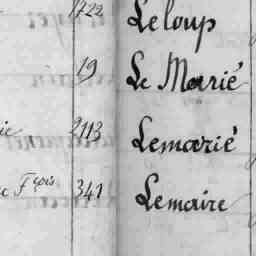 1722 Leloup
19 Le Marié
ie 2113 Lemarié
c Fçois 341 Lemaire